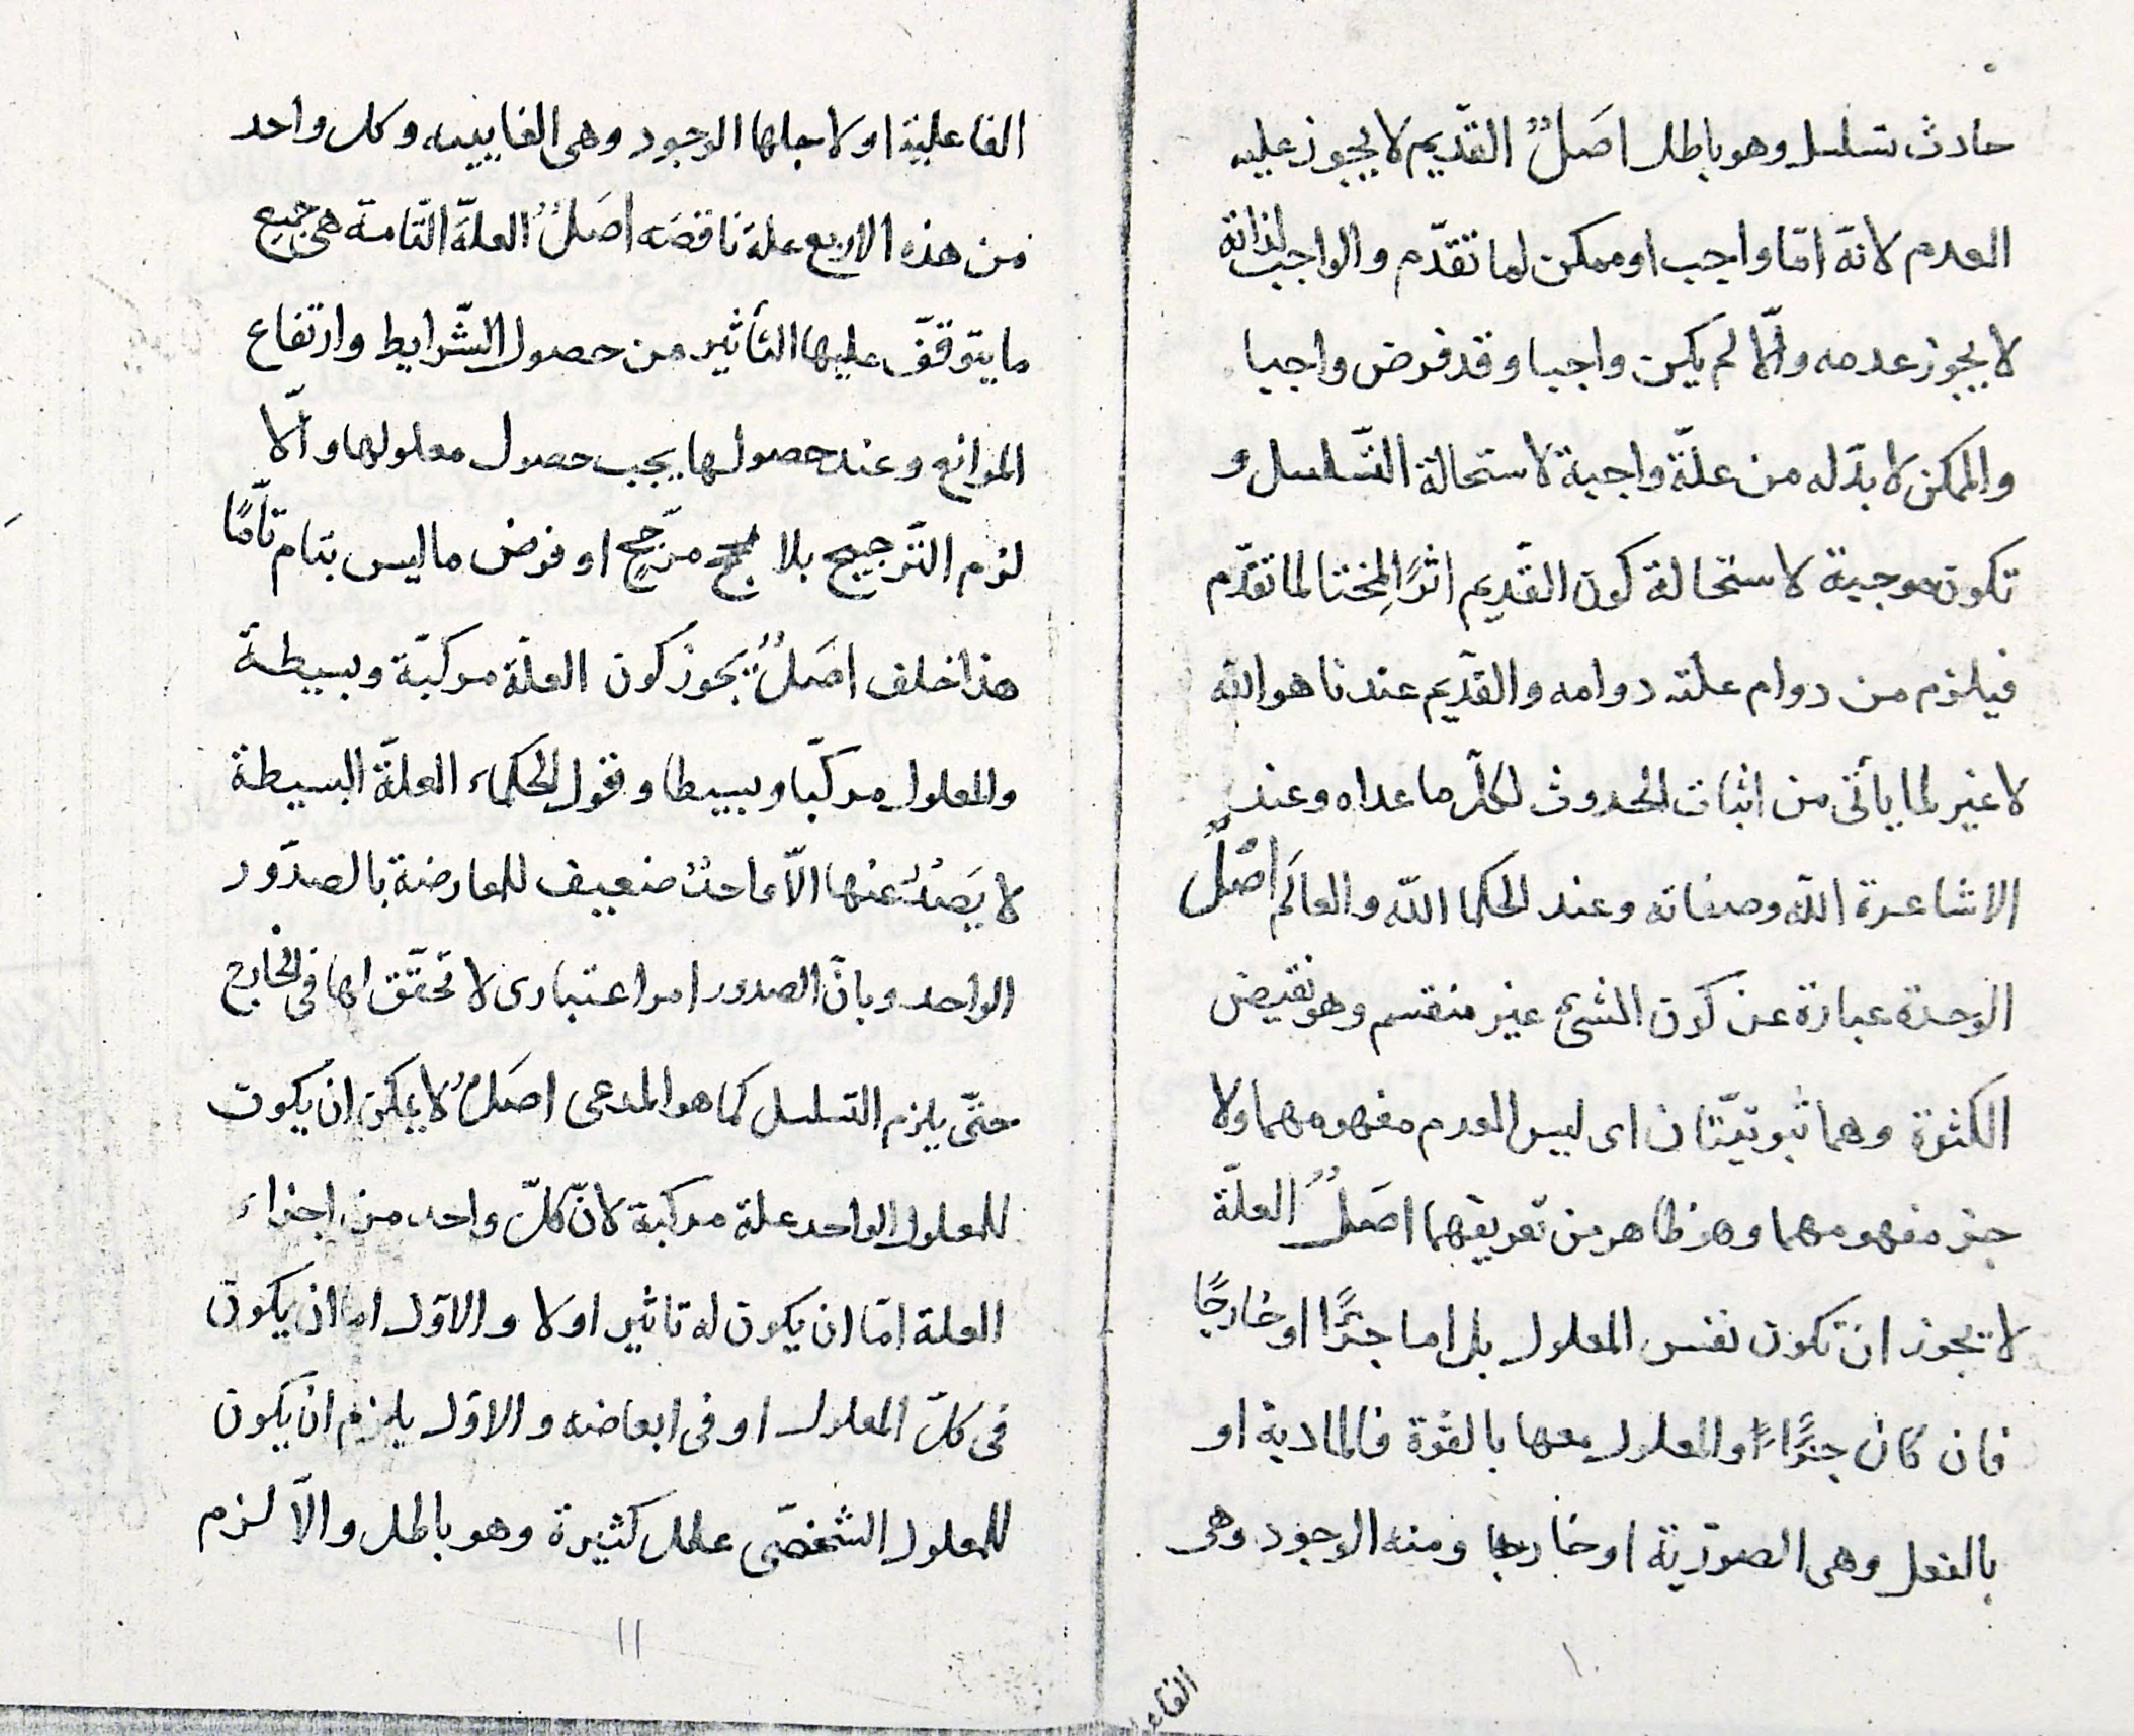 حادث تسلسل وهو باطل اصَلٌ القدّيم لا يجوز عليه
العدم لانه امّا واجب او ممكن لما تقدّم والواجب لذاته
لا يجوز عدمه والّا لم يكن واجبا وقد فرض واجبا
والممكن لا بدّ له من علّة واجبة لاستحالة التّسلسل و
تكون موجبة لاستحالة كون القدّيم اثرًا لمِختا لما تقدّم
فيلزم من دوام علته دوامه والقدّيم عندنا هو الله
لا غير لما يأتى من اثبات الحدوث لكلّ ما عداه وعند
الاشاعرة اللّه وصفاته وعند الحكما اللّه والعالَم اصَلٌ
الوحدة عبارة عن كون الشئ غير منقسم وهو نقيض
الكثرة وهما ثبوتيّتان اى ليس العدم مفهومهما ولا
جزء مفهومهما وهو ظاهر من تعريفهما اصَلٌ العلّة
لا يجوز ان تكون نفس المعلول بل اما جزًا او خارجًا
فان كان جزًاءً او المعلول معها بالقوّة فالمادية او
بالفعل وهى الصوّرية او خارجا ومنه الوجود وهى
الفاء
١٠
الفاعلية او لاجلها الوجود وهى الغاييه وكل واحد
من هذه الاربع علة ناقصَه اصَلٌ العلّة التّامة هى جميع
ما يتوقّف عليها التأثير من حصول الشّرايط وارتفاع
الموانع وعند حصولها يجب حصول معلولها والّا
لزم التّرجيح بلا مرَجحٍ او فرض ما ليس بتام تامًّا
هذا خلف اصَلٌ يَجوز كون العلّة مركبّة وبسيطة
والمعلول مركبّا وبسيطا وقول الحكماء العلّة البسيطة
لا يَصْدُر عنها الاّ واحدٌ ضعيف للمعارضة بالصدّور
الواحد وبانّ الصدور امر اعتبارى لا تحقّق لها فى الخارج
حتّى يلزم التسلسل كما هو المدعى اصَلٌ لا يمكن ان يكون
للمعلول الواحد علة مركبة لانّ كلّ واحد من اجزاء
العلة امّا ان يكون له تاثير اولا والاوّل اما ان يكون
فى كلّ المعلول او فى ابعاضه والاوّل يلزم ان يكون
للمعلول الشخصّى علل كثيرة وهو باطل والاّ لزم
١١